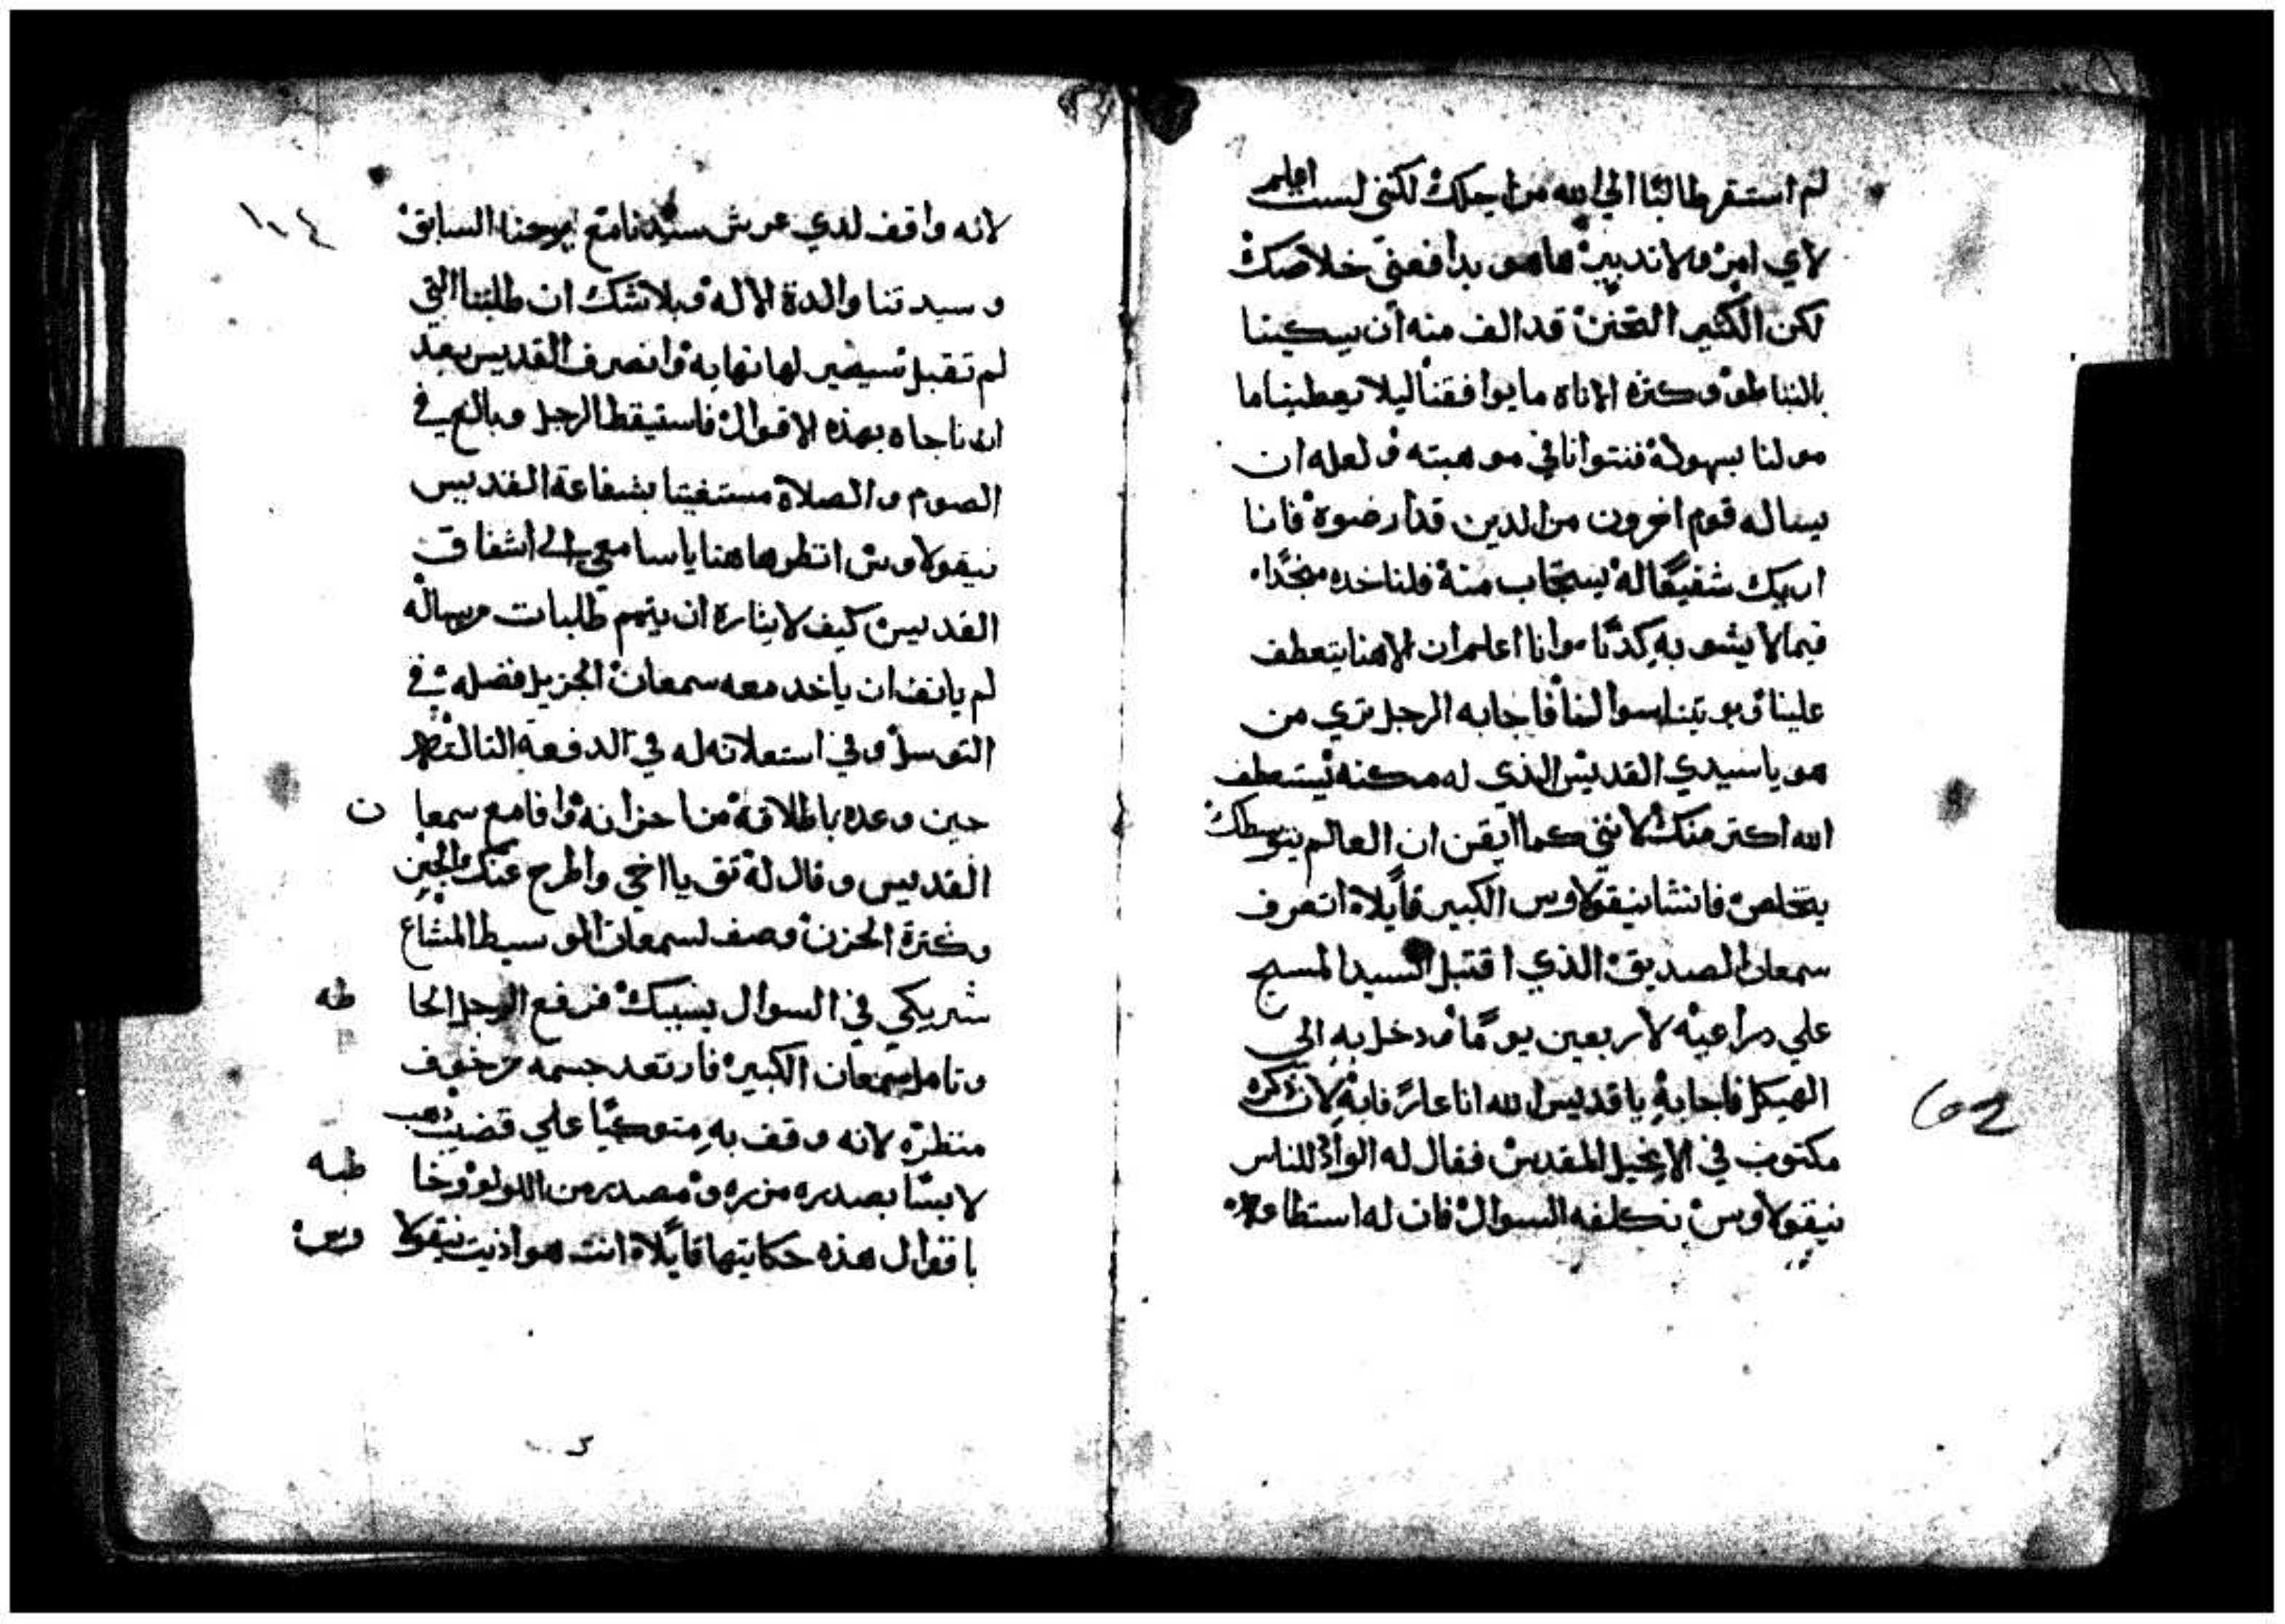 لم استقر طالبًا الي الله من اجلك لكنني لست اعلم
لاي امر ولا تدبير ماهو يدافعني خلاصك
لكن الكثير التحنن قد الف منه ان يسكبنا
بالتباطو وكثرة الاناه ما يوافقنا ليلا يعطينا ما
سولنا بسهولة فنتوانا في موهبته ولعله ان
يساله قوم اخرون من الدين قد ارضوة فانا
اريك شفيعًا له يستجاب منة فلناخده منجدًا
فيما لا يشوبه كدبًا وانا اعلم ان الاهنا يتعطف
علينا ويوتينا سوالنا فاجابه الرجل تري من
هو ياسيدي القديس الذي له مكنه يستعطف
الله اكتر منك لانني كما ايقن ان العالم بتوسطك
يتخلص فانشا نيقولاوس الكبير قايلاه اتعرف
سمعان الصديق الذي اقتبل السيد المسيح
علي دراعيه لاربعين يومًا ودخل به الى
الهيكل فاجابه ياقديس الله انا عارف به لان ذكره
مكتوب في الانجيل المقدس فقال له الواد للناس
نيقولاوس نكلفه السوال فان له استطاعه
١٠٤
لانه واقف لدي عرش سيدنا مع يوحنا السابق
وسيدتنا والدة الاله فبلا شك ان طلبتنا التي
لم تقبل تسيصير لها نهاية وانصرف القديس بعد
ان ناجاه بهذه الاقوال فاستيقظ الرجل وبالغ في
الصوم والصلاة مستغيتا بشفاعة القديس
نيقولاوس انظروا هاهنا ياسامعي الى اشفاق
القديس كيف لايثاره ان يتمم طلبات من ساله
لم يانف ان ياخد معه سمعان الجزيل فضله في
التوسل وفي استعلانه له في الدفعه التالته
حين وعده باطلاقه من احزانه وافا مع سمعان
القديس وقال له تق يا اخي واطرح عنك الجبن
وكثرة الحزن وصف لسمعان الوسيط المشاع
شريكي في السوال بسببك فرفع الرجل الحاظه
وتامل سمعان الكبير فارتعد جسمه من خوف
منظره لانه وقف به متوكيًا علي قضيب ذهب
لابسًا بصدره مزره ومصدره من اللولو وخاطبه
باقوال هذه حكايتها قايلاه انت هو اذيت نيقولاوس